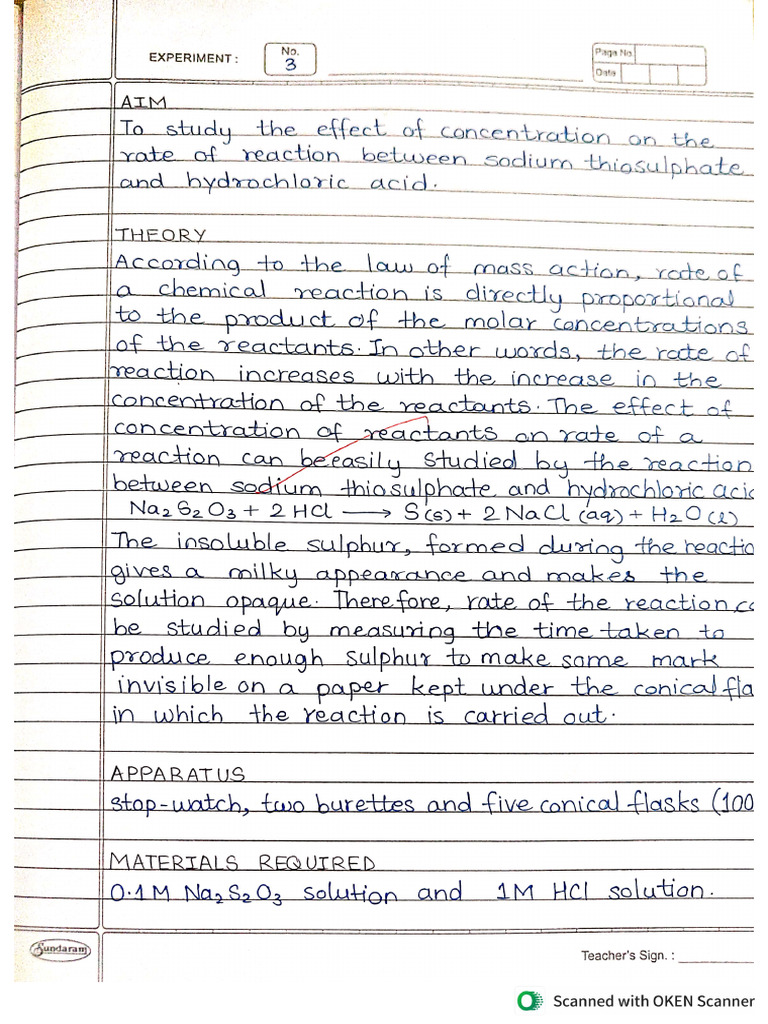 EXPERIMENT :
No.
3
Page No.
Date
AIM
To study the effect of concentration on the
rate of reaction between sodium thiosulphate
and hydrochloric acid.
THEORY
According to the law of mass action, rate of
a chemical reaction is directly proportional
to the product of the molar concentrations
of the reactants. In other words, the rate of
reaction increases with the increase in the
concentration of the reactants. The effect of
concentration of reactants on rate of a
reaction can be easily studied by the reaction
between sodium thiosulphate and hydrochloric acid
Na₂S₂O₃ + 2 HCl ⟶ S(s) + 2 NaCl (aq) + H₂O (l)
The insoluble sulphur, formed during the reactio
gives a milky appearance and makes the
solution opaque. Therefore, rate of the reaction c
be studied by measuring the time taken to
produce enough sulphur to make some mark
invisible on a paper kept under the conical fla
in which the reaction is carried out.
APPARATUS
stop-watch, two burettes and five conical flasks (100
MATERIALS REQUIRED
0.1M Na₂S₂O₃ solution and 1M HCl solution.
Sundaram
Teacher's Sign. :
Scanned with OKEN Scanner